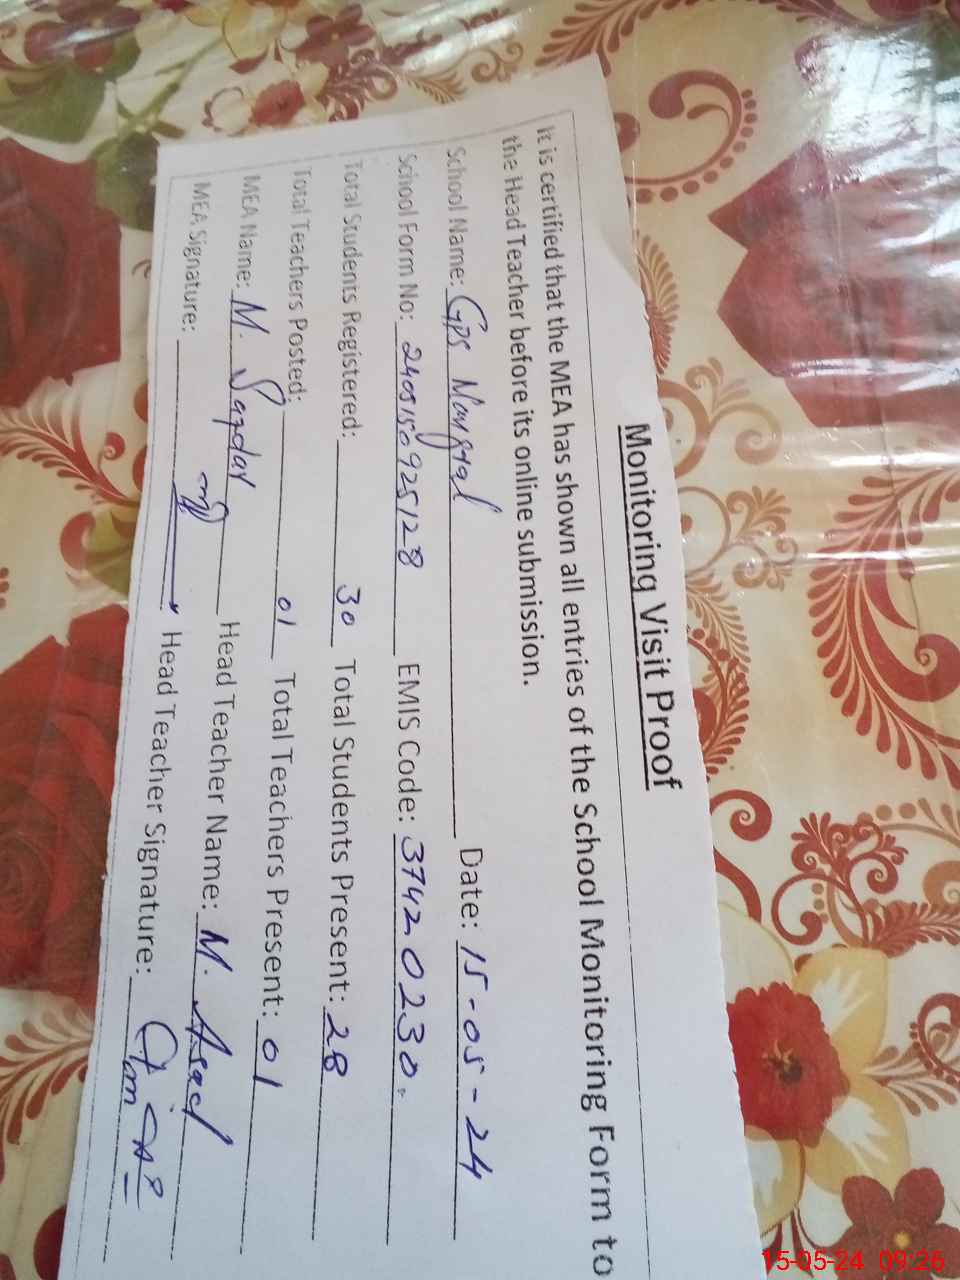 Monitoring Visit Proof
It is certified that the MEA has shown all entries of the School Monitoring Form to
the Head Teacher before its online submission.
School Name: GPS Date: 15-05-24
School Form No: 2405150925128 EMIS Code: 37420230
Total Students Registered: 30 Total Students Present: 28
Total Teachers Posted: 01 Total Teachers Present: 01
MEA Name: M. Head Teacher Name: M. Asad
MEA Signature: Head Teacher Signature:
15-05-24 09:26